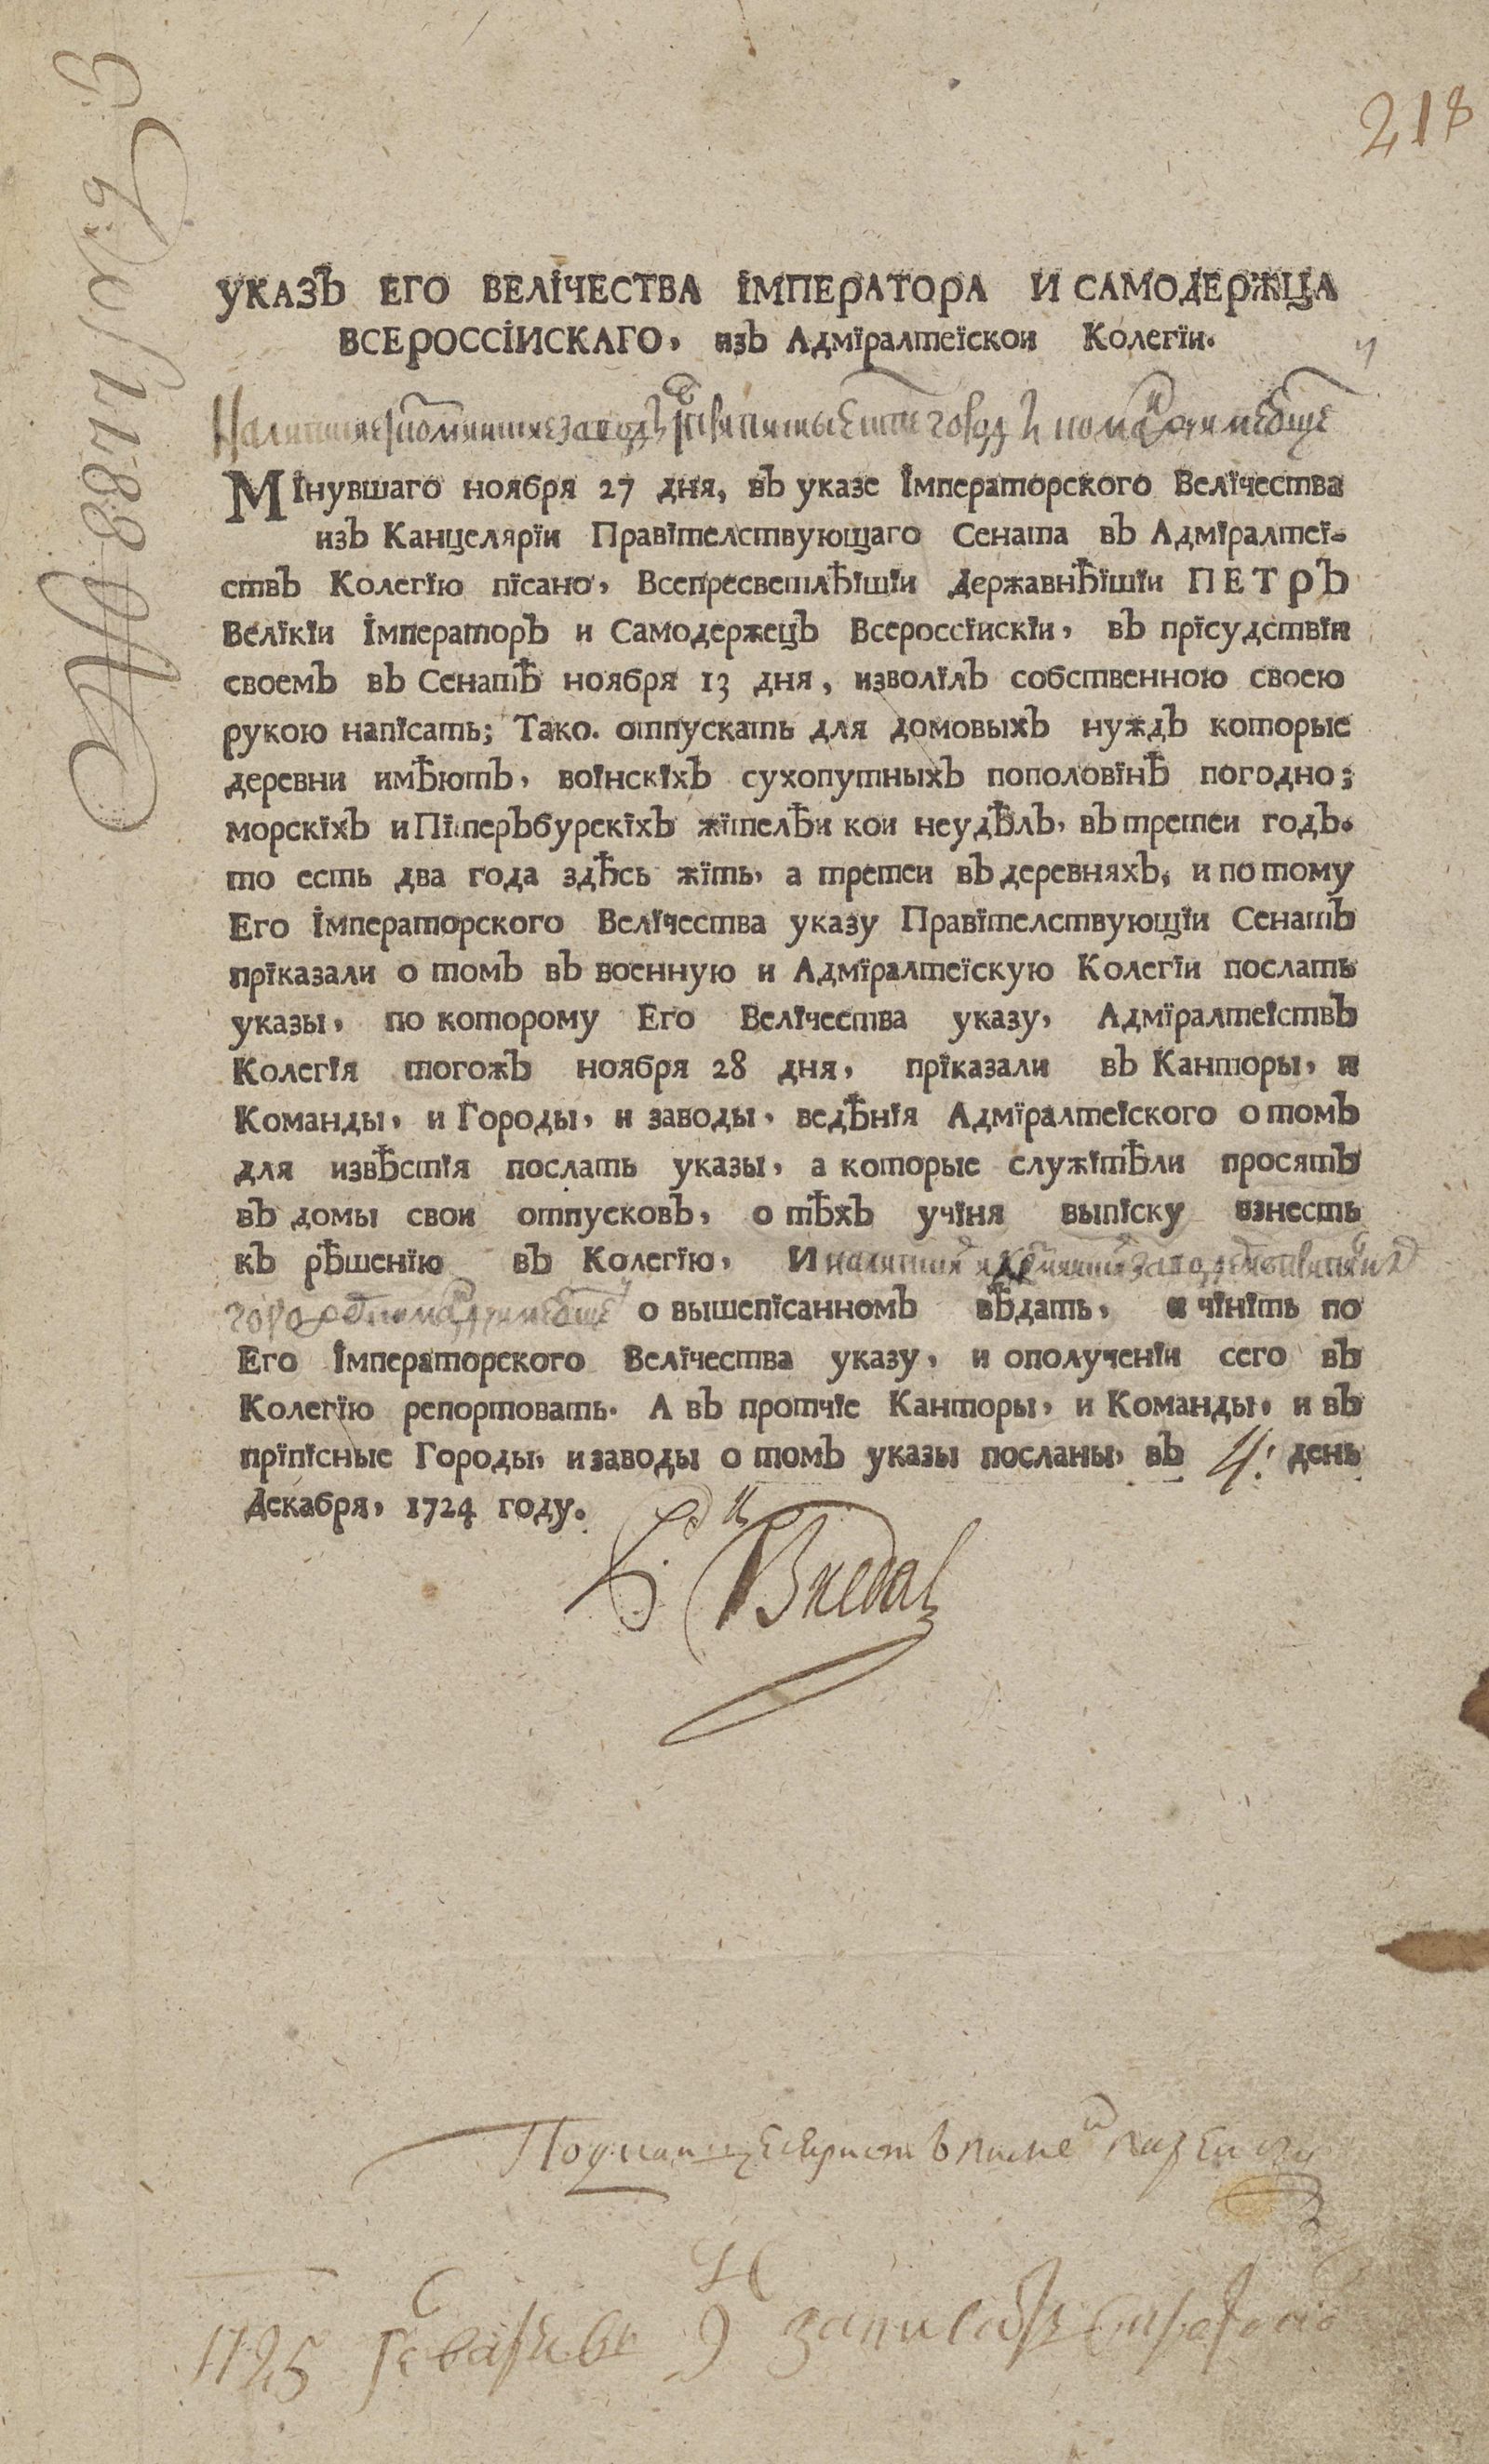 218
УКАЗЪ ЕГО ВЕЛІЧЕСТВА ІМПЕРАТОРА И САМОДЕРЖЦА
ВСЕРОССІИСКАГО, изъ Адмїралтеїскои Колегїи.
Мїнувшаго ноября 27 дня, въ указе Їмператорского Велїчества
изъ Канцелярїи Правїтелствующаго Сената въ Адмїралтеї-
ствъ Колегїю пїсано, Всепресветлѣїшїи Державнѣїшїи ПЕТРЪ
Велїкїи Їмператоръ и Самодержецъ Всероссїискїи, въ прїсудствїи
своемъ въ Сенатѣ ноября 13 дня, изволїлъ собственною своею
рукою напїсать; Тако. отпускать для домовыхъ нуждъ которые
деревни имѣютъ, воїнскїхъ сухопутныхъ пополовїнѣ погодно;
морскїхъ и Пїтеръбурскїхъ жїтелѣи кои неудѣлъ, въ третеи годъ.
то есть два года здѣсь жїть, а третеи въ деревняхъ, и по тому
Его Їмператорского Велїчества указу Правїтелствующїи Сенатъ
прїказали о томъ въ военную и Адмїралтеїскую Колегїи послать
указы, по которому Его Велїчества указу, Адмїралтеїствъ
Колегїя тогожъ ноября 28 дня, прїказали въ Канторы, и
Команды, и Городы, и заводы, ведѣнїя Адмїралтеїского о томъ
для извѣстїя послать указы, а которые служїтѣли просятъ
въ домы свои отпусковъ, о тѣхъ учїня выпїску взнесть
къ рѣшенїю въ Колегїю, И
о вышепїсанномъ вѣдать, и чїнїть по
Его Їмператорского Велїчества указу, и ополученїи сего въ
Колегїю репортовать. А въ протчїе Канторы, и Команды, и въ
прїпїсные Городы, и заводы о томъ указы посланы, въ 4: день
Декабря, 1724 году.
1725